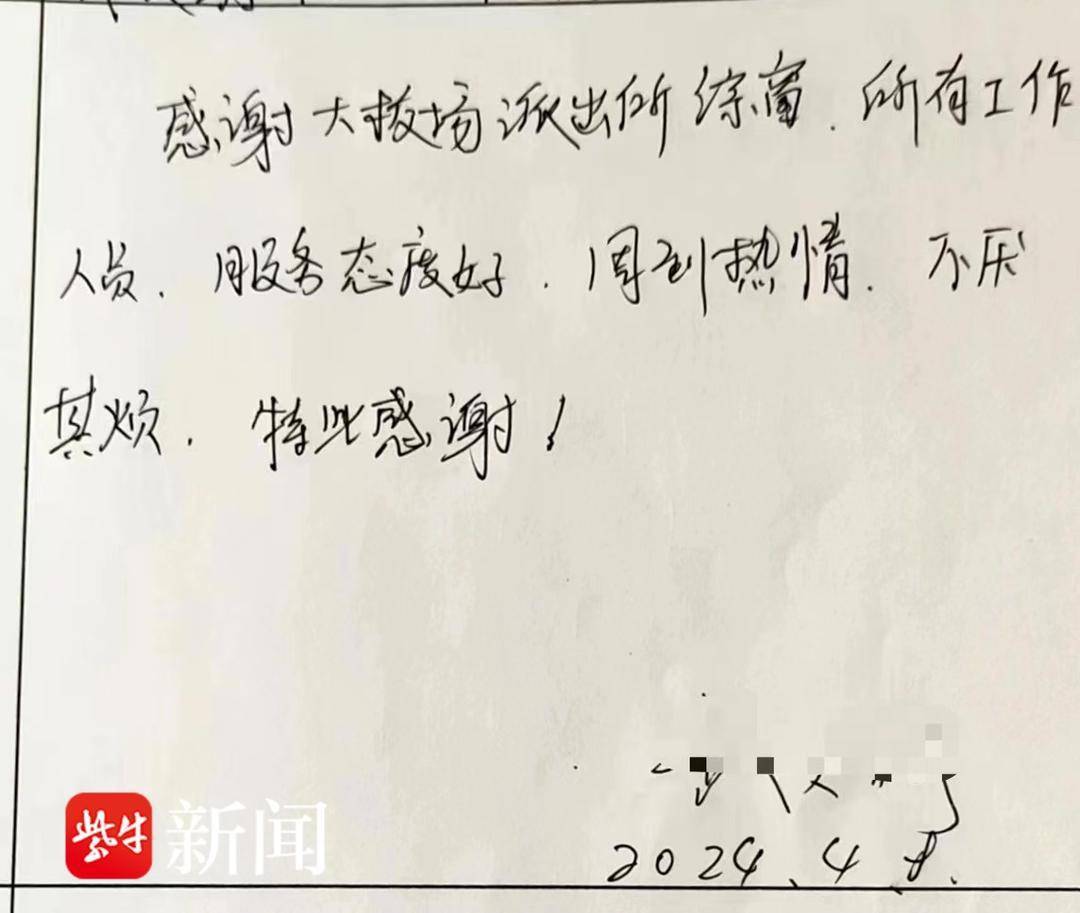 感谢大校场派出所综窗.所有工作
人员.服务态度好.周到热情.不厌
其烦.特此感谢!
2024.4.8.
紫牛新闻